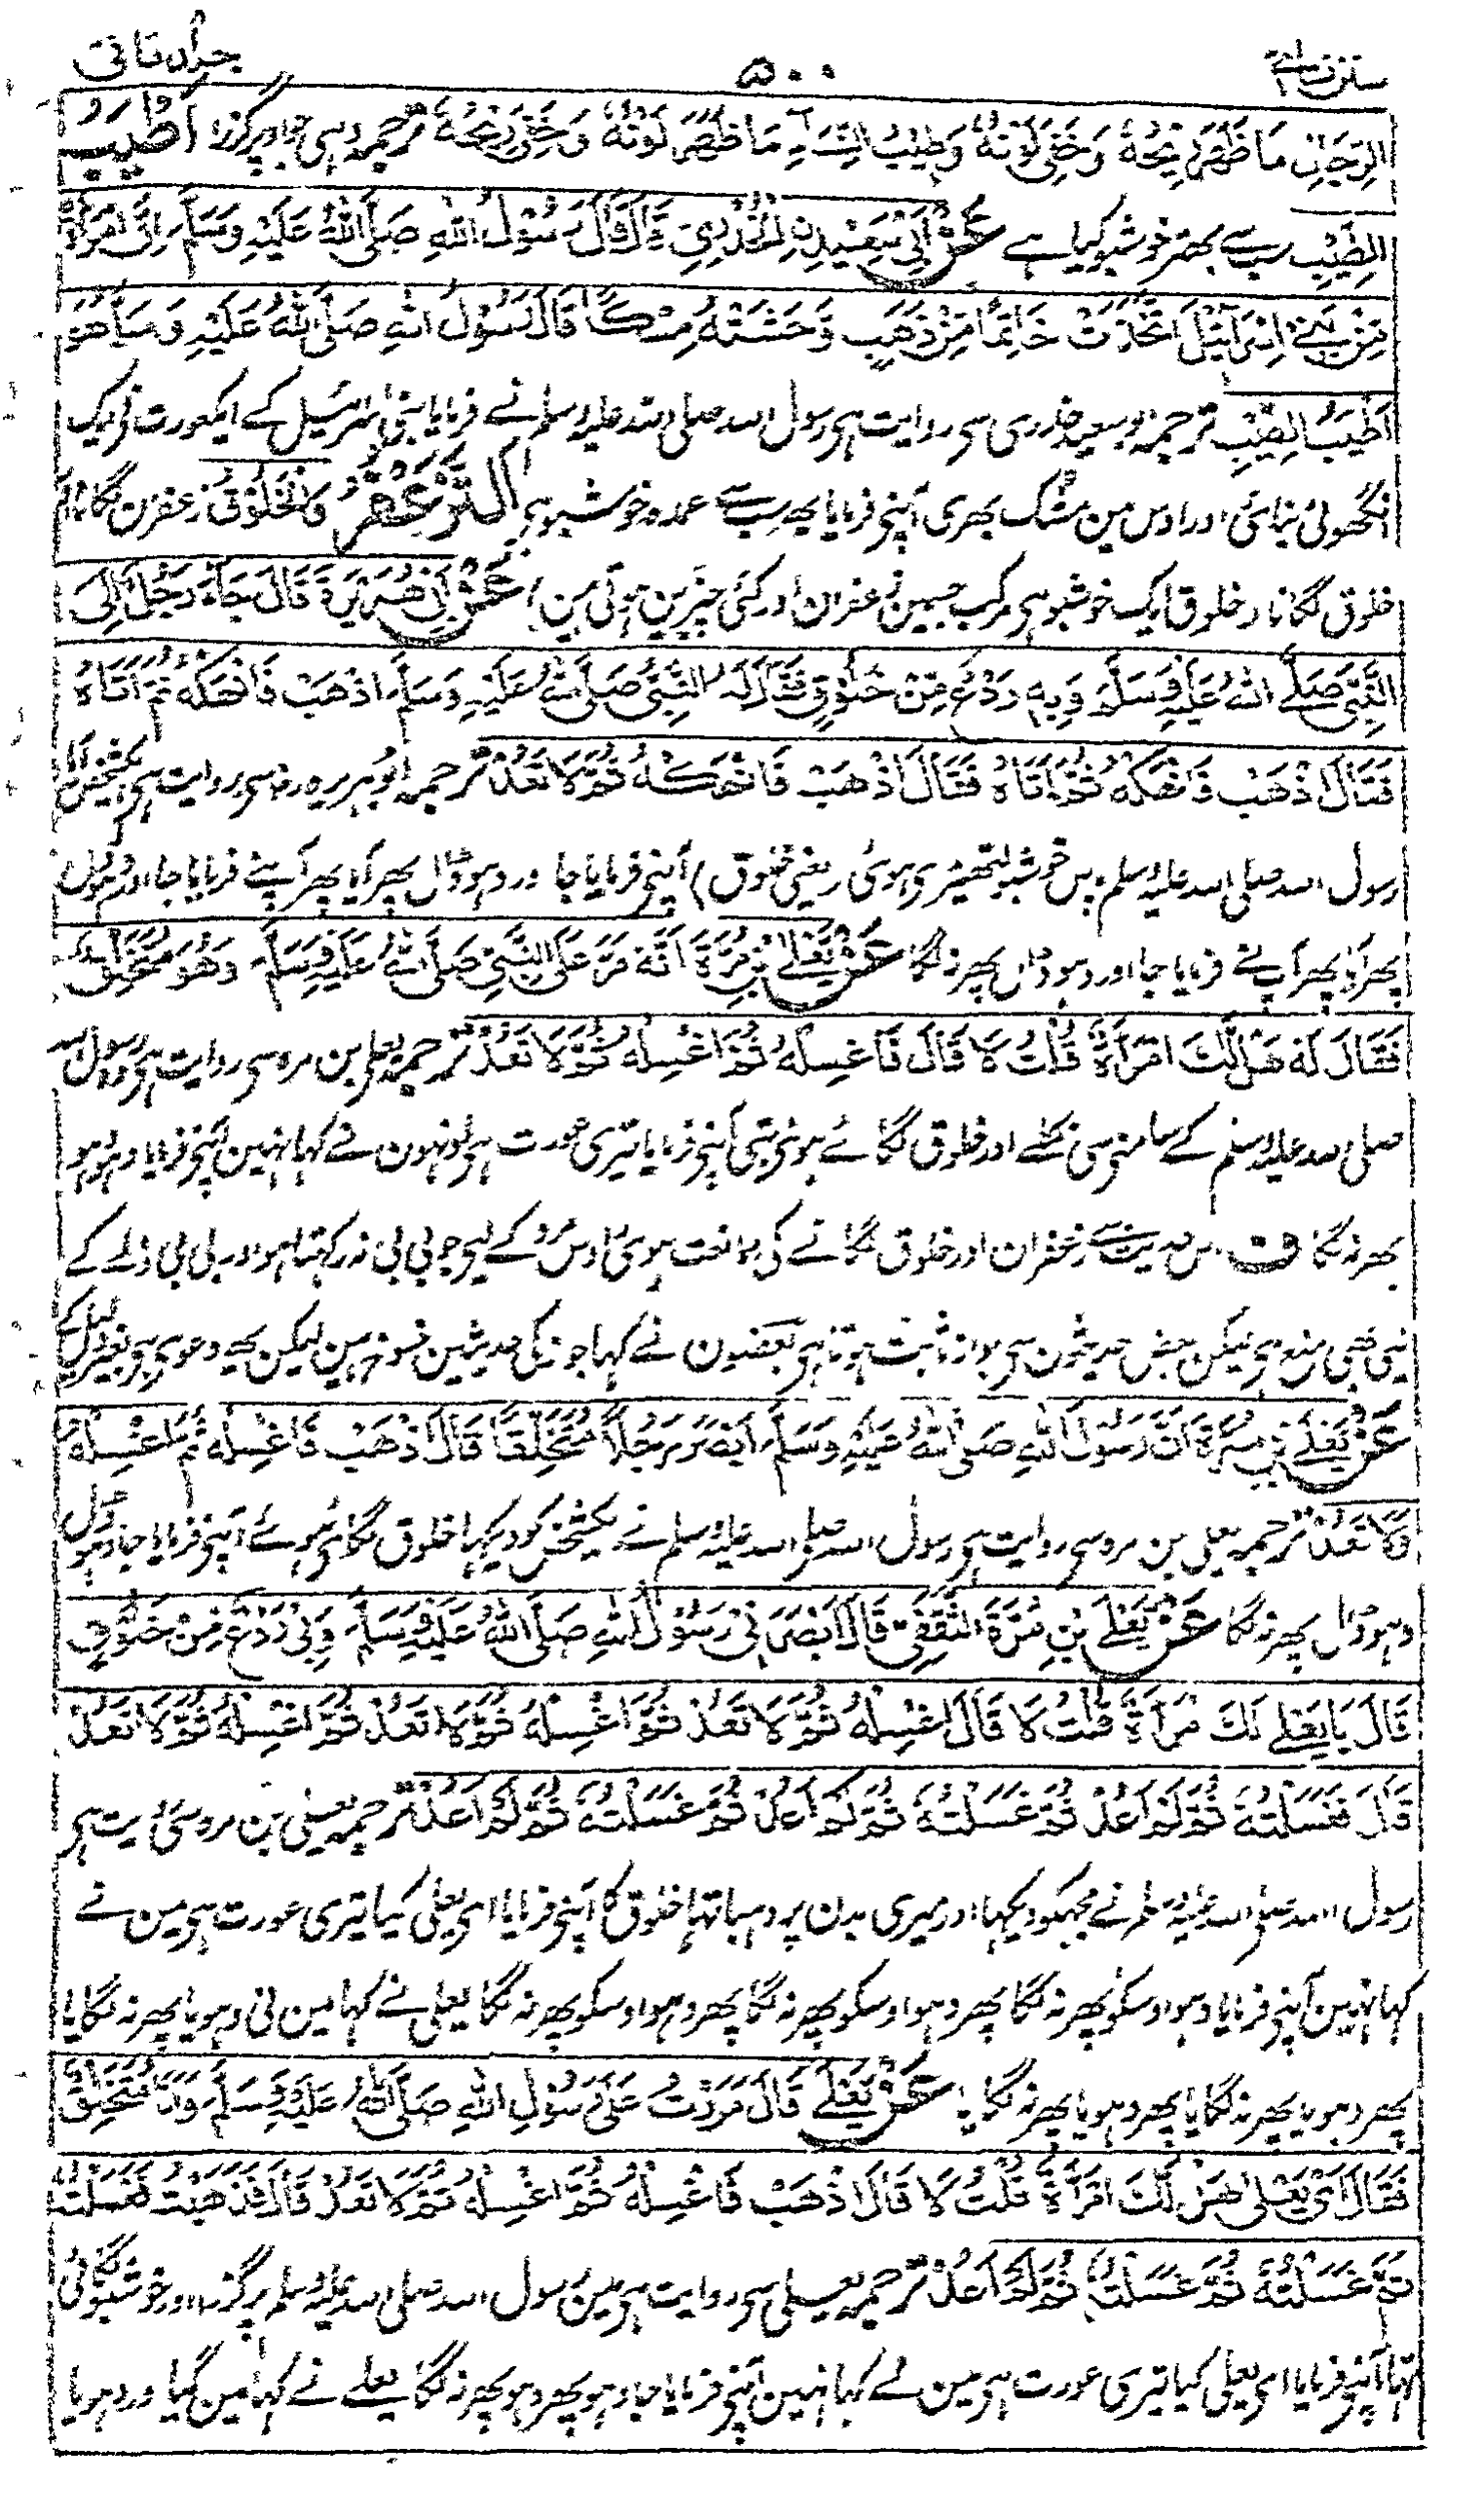 سنن نسائی ۵۰۰ جلد ثانی
الرِّجَالِ مَا ظَهَرَ رِيْحُهُ وَخَفِيَ لَوْنُهُ وَطِيْبُ النِّسَآءِ مَا ظَهَرَ لَوْنُهُ وَخَفِيَ رِيْحُهُ ترجمہ وہی جو اوپر گزرا اَطْيَبُ
الطِّيْبِ سب سے بہتر خوشبو کیا ہے عَنْ اَبِيْ سَعِيْدِنِ الْخُدْرِيِّ قَالَ قَالَ رَسُوْلُ اللهِ صَلَّى اللهُ عَلَيْهِ وَسَلَّمَ اِنَّ امْرَأَةً
مِّنْ بَنِيْ اِسْرَآئِيْلَ اتَّخَذَتْ خَاتَمًا مِّنْ ذَهَبٍ وَّحَشَتْهُ مِسْكًا قَالَ رَسُوْلُ اللهِ صَلَّى اللهُ عَلَيْهِ وَسَلَّمَ هُوَ
اَطْيَبُ الطِّيْبِ ترجمہ ابو سعید خدری سی روایت ہی رسول اللہ صلی اللہ علیہ وسلم نے فرمایا بنی اسرائیل کے ایک عورت نے ایک
انگھوٹی بنائی اور اوس مین مشک بھری آپنی فرمایا یہ سب سے عمدہ خوشبو ہی اَلتَّزَعْفُرُ وَالْخَلُوْقُ زعفران لگانا اور
خلوق لگانا (خلوق ایک خوشبو ہی مرکب جسمین زعفران اور کئی چیزین ہوتی ہین) عَنْ اَبِيْ هُرَيْرَةَ قَالَ جَاءَ رَجُلٌ اِلَى
النَّبِيِّ صَلَّى اللهُ عَلَيْهِ وَسَلَّمَ وَبِهِ رَدْعٌ مِّنْ خَلُوْقٍ فَقَالَ لَهُ النَّبِيُّ صَلَّى اللهُ عَلَيْهِ وَسَلَّمَ اذْهَبْ فَانْهَكْهُ ثُمَّ اَتَاهُ
فَقَالَ اذْهَبْ فَانْهَكْهُ ثُمَّ اَتَاهُ فَقَالَ اذْهَبْ فَانْهَكْهُ ثُمَّ لَا تَعُدْ ترجمہ ابو ہریرہ رضی سی روایت ہی ایک شخص آیا
رسول اللہ صلی اللہ علیہ وسلم پاس خوشبو لتھیڑی ہوئی (یعنی خلوق) آپنی فرمایا جا اور دھو ڈال پھر آیا پھر آپنے فرمایا جا اور دھو ڈال
پھر آیا پھر آپنے فرمایا جا اور دھو ڈال پھر نہ لگا عَنْ يَعْلَى بْنِ مُرَّةَ اَنَّهُ مَرَّ عَلَى النَّبِيِّ صَلَّى اللهُ عَلَيْهِ وَسَلَّمَ وَهُوَ مُتَخَلِّقٌ
فَقَالَ لَهُ هَلْ لَّكَ امْرَأَةٌ قُلْتُ لَا قَالَ فَاغْسِلْهُ ثُمَّ اغْسِلْهُ ثُمَّ لَا تَعُدْ ترجمہ یعلی بن مرہ سی روایت ہی وہ رسول اللہ
صلی اللہ علیہ وسلم کے سامنی سی نکلے اور خلوق لگائے ہوئی تہی آپنی فرمایا تیری عورت ہی اونہون نے کہا نہین آپنی فرمایا دھو دھو
پھر نہ لگا ف اس حدیث سے زعفران اور خلوق لگانے کی ممانعت ہوئی اوس مرد کے لیی جو بی بی نہ رکہتا ہو اور بی بی والے کے
لیی بھی منع ہی لیکن بعض حدیثون سی جواز ثابت ہوتا ہی بعضون نے کہا جواز کی حدیثین منسوخ ہین لیکن یہ دعوی ہی بغیر دلیل کے
عَنْ يَعْلَى بْنِ مُرَّةَ اَنَّ رَسُوْلَ اللهِ صَلَّى اللهُ عَلَيْهِ وَسَلَّمَ اَبْصَرَ رَجُلًا مُّتَخَلِّقًا قَالَ اذْهَبْ فَاغْسِلْهُ ثُمَّ اغْسِلْهُ
وَلَا تَعُدْ ترجمہ یعلی بن مرہ سی روایت ہی رسول اللہ صلی اللہ علیہ وسلم نے ایک شخص کو دیکہا خلوق لگائی ہوئے آپنی فرمایا جا دھو ڈال
دھو ڈال پھر نہ لگا عَنْ يَعْلَى بْنِ مُرَّةَ الثَّقَفِيِّ قَالَ اَبْصَرَنِيْ رَسُوْلُ اللهِ صَلَّى اللهُ عَلَيْهِ وَسَلَّمَ وَبِيْ رَدْعٌ مِّنْ خَلُوْقٍ
قَالَ يَا يَعْلَى لَكَ امْرَأَةٌ قُلْتُ لَا قَالَ اغْسِلْهُ ثُمَّ لَا تَعُدْ ثُمَّ اغْسِلْهُ ثُمَّ لَا تَعُدْ ثُمَّ اغْسِلْهُ ثُمَّ لَا تَعُدْ
قَالَ فَغَسَلْتُهُ ثُمَّ لَمْ اَعُدْ ثُمَّ غَسَلْتُهُ ثُمَّ لَمْ اَعُدْ ثُمَّ غَسَلْتُهُ ثُمَّ لَمْ اَعُدْ ترجمہ یعلی بن مرہ سی روایت ہی
رسول اللہ صلی اللہ علیہ وسلم نے مجہکو دیکہا اور میری بدن پر دہبا تہا خلوق کا آپنی فرمایا ای یعلی کیا تیری عورت ہی مین نے
کہا نہین آپنی فرمایا دھو اوسکو پھر نہ لگا پھر دھو اوسکو پھر نہ لگا پھر دھو اوسکو پھر نہ لگا یعلی نے کہا مین نی دھویا پھر نہ لگایا
پھر دھویا پھر نہ لگایا پھر دھویا پھر نہ لگایا عَنْ يَعْلَى قَالَ مَرَرْتُ عَلَى رَسُوْلِ اللهِ صَلَّى اللهُ عَلَيْهِ وَسَلَّمَ وَاَنَا مُتَخَلِّقٌ
فَقَالَ اَيْ يَعْلَى هَلْ لَّكَ امْرَأَةٌ قُلْتُ لَا قَالَ اذْهَبْ فَاغْسِلْهُ ثُمَّ اغْسِلْهُ ثُمَّ لَا تَعُدْ قَالَ فَذَهَبْتُ فَغَسَلْتُهُ
ثُمَّ غَسَلْتُهُ ثُمَّ غَسَلْتُهُ ثُمَّ لَمْ اَعُدْ ترجمہ یعلی سی روایت ہی مین رسول اللہ صلی اللہ علیہ وسلم پر گزرا اور خوشبو لگائی
تہا آپنی فرمایا ای یعلی کیا تیری عورت ہی مین نے کہا نہین آپنی فرمایا جا دھو پھر دھو پھر نہ لگا یعلے نے کہا مین گیا اور دھویا